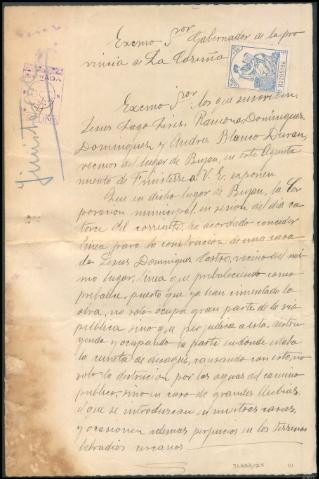 Excmo Sror Gobernador de la pro
vincia de La Coruña
Finisterre
Excmo Sror, los que suscriben
Jesus Lago Lires, Ramona Dominguez
Dominguez y Andres Blanco Duran,
vecinos del lugar de Buján, en este Ayunta
miento de Finisterre a V. E. exponen
Que en dicho lugar de Bujan, la Cor
poracion municipal en sesion del dia ca
torce del corriente, ha acordado conceder
linea para la construcion de una casa
a Jesus Dominguez Castro, vecino del mis
mo lugar, linea que prevaleciendo como
prevalece, puesto que ya han cimentado la
obra, no solo ocupa gran parte de la via
pública sino que perjudica a esta, destru
yendo y ocupando la parte en donde estaba
la cuneta de desagüe, causando con esto, no
solo la destrucion por las aguas del camino
publico, sino en caso de grandes lluvias,
el que se introduzcan en nuestras casas,
y ocasionen ademas perjuicios en los terrenos
labradios cercanos